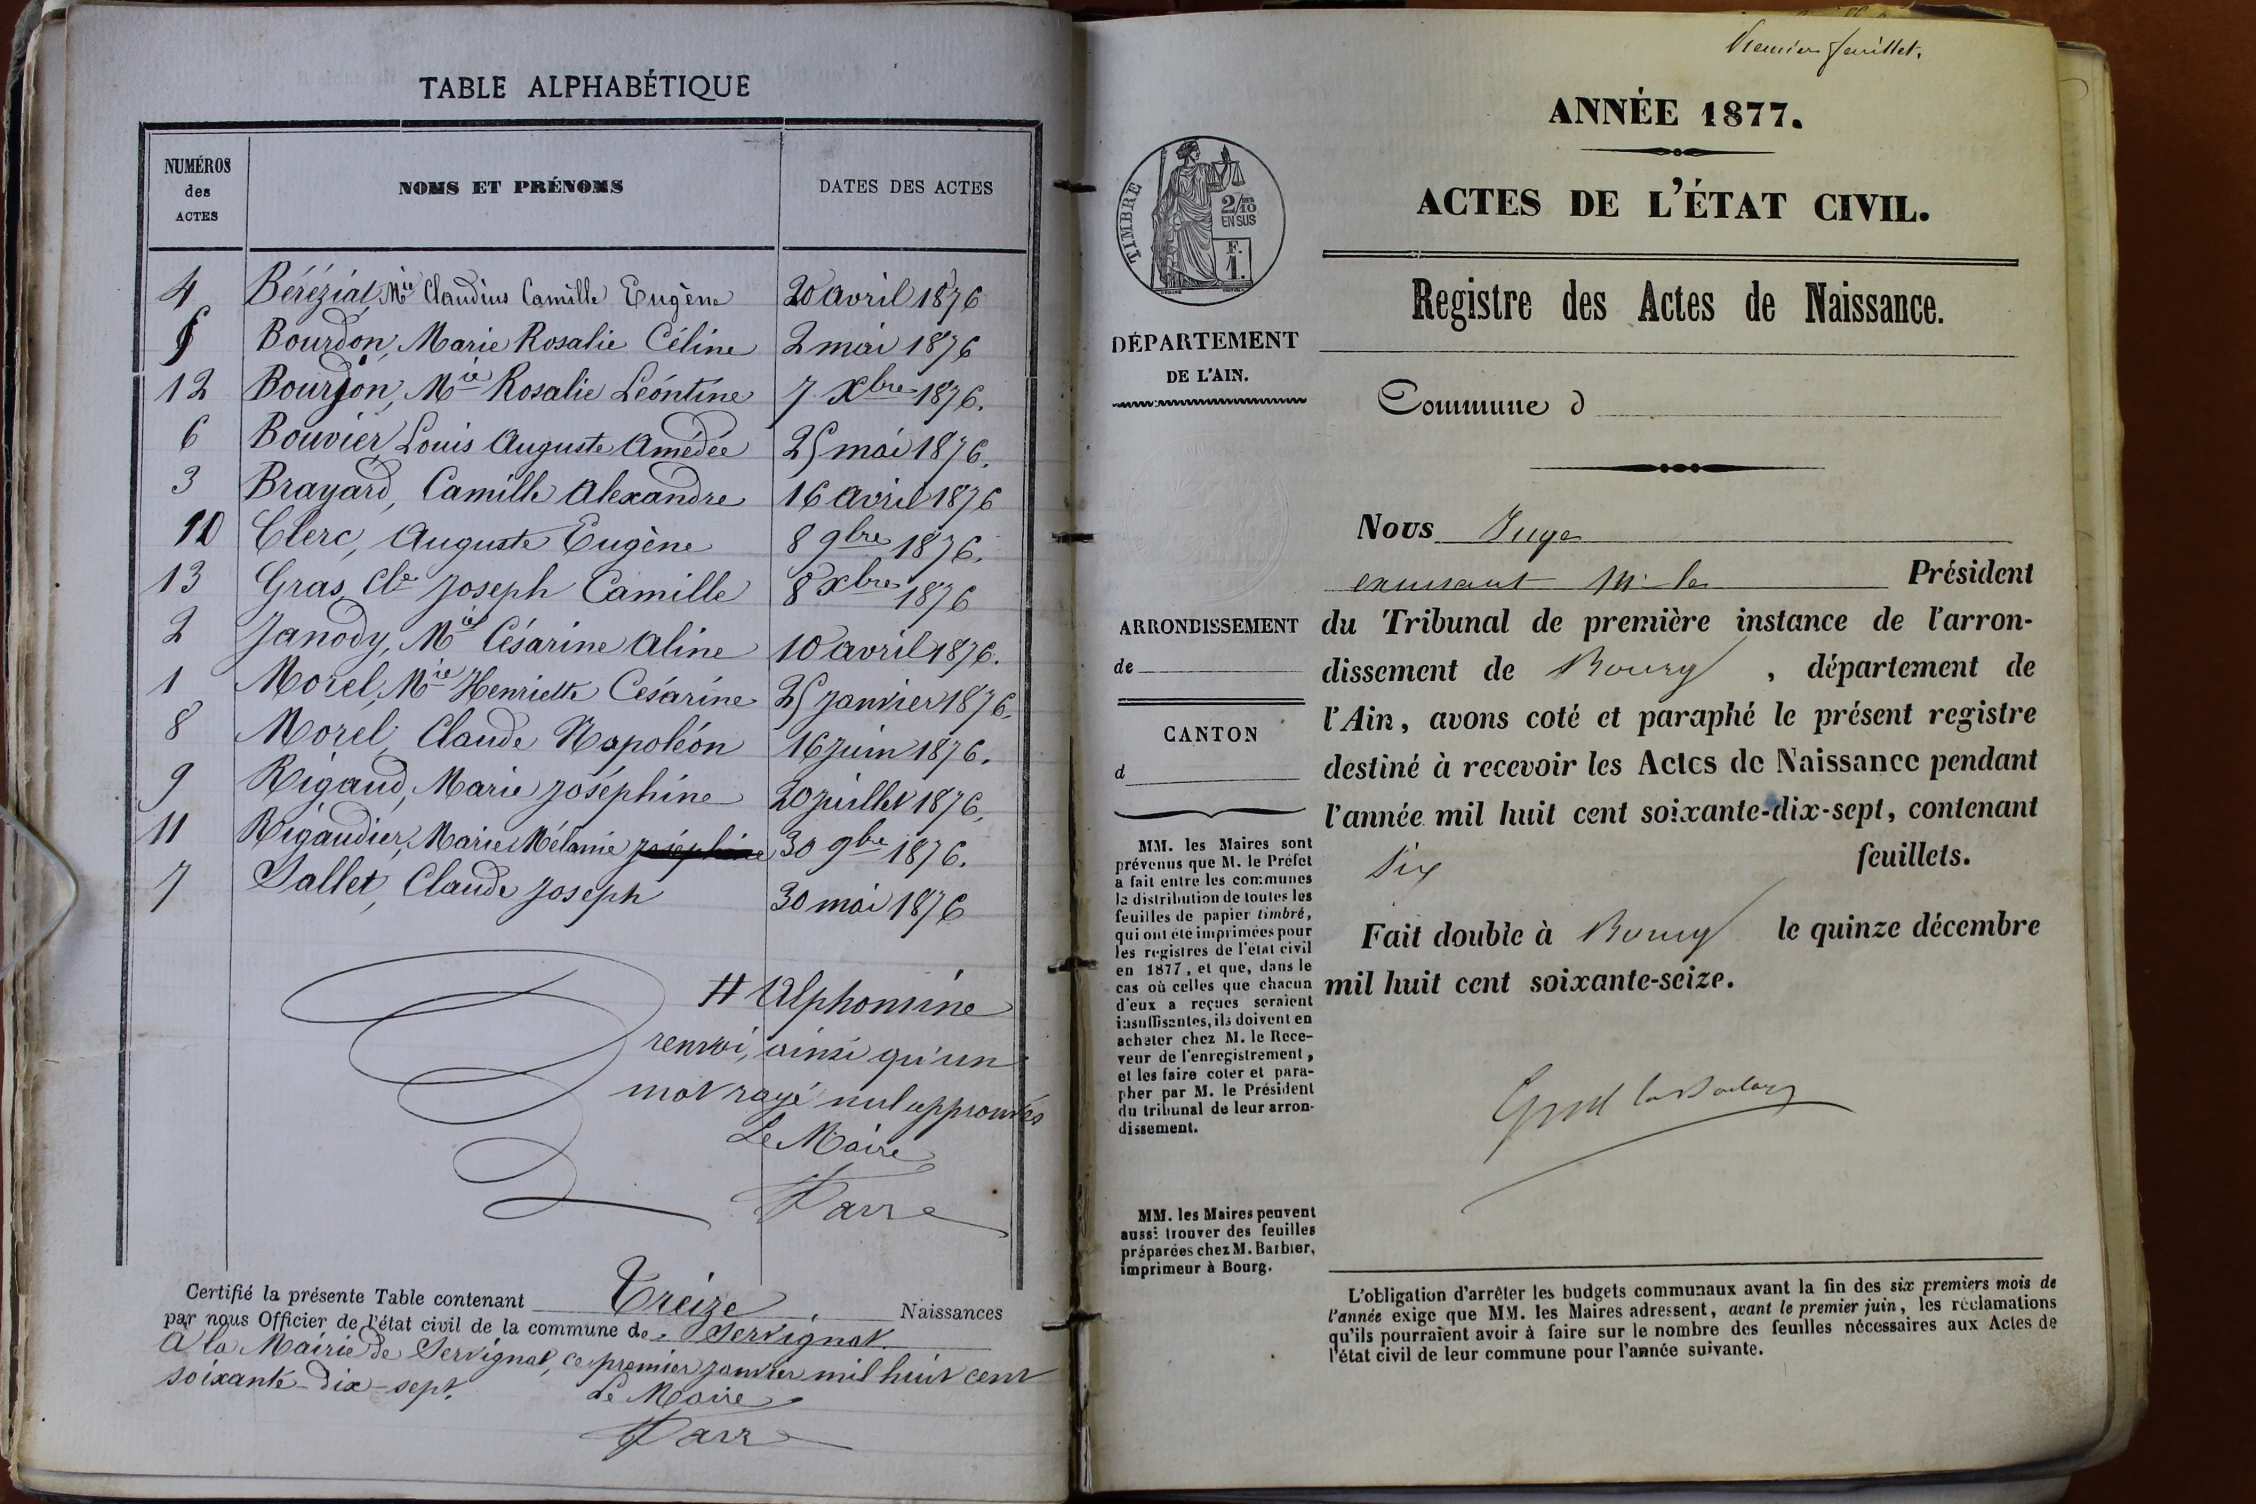 TABLE ALPHABÉTIQUE
NUMÉROS
des
ACTES
NOMS ET PRÉNOMS
DATES DES ACTES
4 Béréziat, Mie Claudius Camille Eugène 20 avril 1876
5 Bourdon, Marie Rosalie Céline 2 mai 1876
12 Bourdon, Mie Rosalie Léontine 7 Xbre 1876.
6 Bouvier, Louis Auguste Amédée 25 mai 1876.
3 Brayard, Camille Alexandre 16 avril 1876
10 Clerc, Auguste Eugène 8 9bre 1876.
13 Gras, Cle Joseph Camille 8 Xbre 1876
2 Janody, Mie Césarine Aline 10 avril 1876.
1 Morel, Mie Henriette Césarine 25 Janvier 1876.
8 Morel, Claude Napoléon 16 Juin 1876.
9 Rigaud, Marie Joséphine 20 Juillet 1876.
11 Rigaudier, Marie Mélanie Joséphine 30 9bre 1876.
7 Sallet, Claude Joseph 30 mai 1876
# Alphonsine
renvoi, ainsi qu'un
mot rayé nul approuvés
Le Maire
Parre
Certifié la présente Table contenant Treize Naissances
par nous Officier de l'état civil de la commune de Servignat.
A la Mairie de Servignat, ce premier janvier mil huit cent
soixante-dix-sept.
Le Maire
Parre
Premier feuillet.
ANNÉE 1877.
ACTES DE L'ÉTAT CIVIL.
TIMBRE
2/10
EN SUS
F.
1.
Registre des Actes de Naissance.
DÉPARTEMENT
DE L'AIN.
Commune d
Nous Juge
Mr le Président
du Tribunal de première instance de l'arron-
dissement de Bourg, département de
l'Ain, avons coté et paraphé le présent registre
destiné à recevoir les Actes de Naissance pendant
l'année mil huit cent soixante-dix-sept, contenant
six feuillets.
Fait double à Bourg le quinze décembre
mil huit cent soixante-seize.
ARRONDISSEMENT
de
CANTON
d
MM. les Maires sont
prévenus que M. le Préfet
a fait entre les communes
la distribution de toutes les
feuilles de papier timbré,
qui ont été imprimées pour
les registres de l'état civil
en 1877, et que, dans le
cas où celles que chacun
d'eux a reçues seraient
insuffisantes, ils doivent en
acheter chez M. le Rece-
veur de l'enregistrement,
et les faire coter et para-
pher par M. le Président
du tribunal de leur arron-
dissement.
MM. les Maires peuvent
aussi trouver des feuilles
préparées chez M. Barbier,
imprimeur à Bourg.
L'obligation d'arrêter les budgets communaux avant la fin des six premiers mois de
l'année exige que MM. les Maires adressent, avant le premier juin, les réclamations
qu'ils pourraient avoir à faire sur le nombre des feuilles nécessaires aux Actes de
l'état civil de leur commune pour l'année suivante.